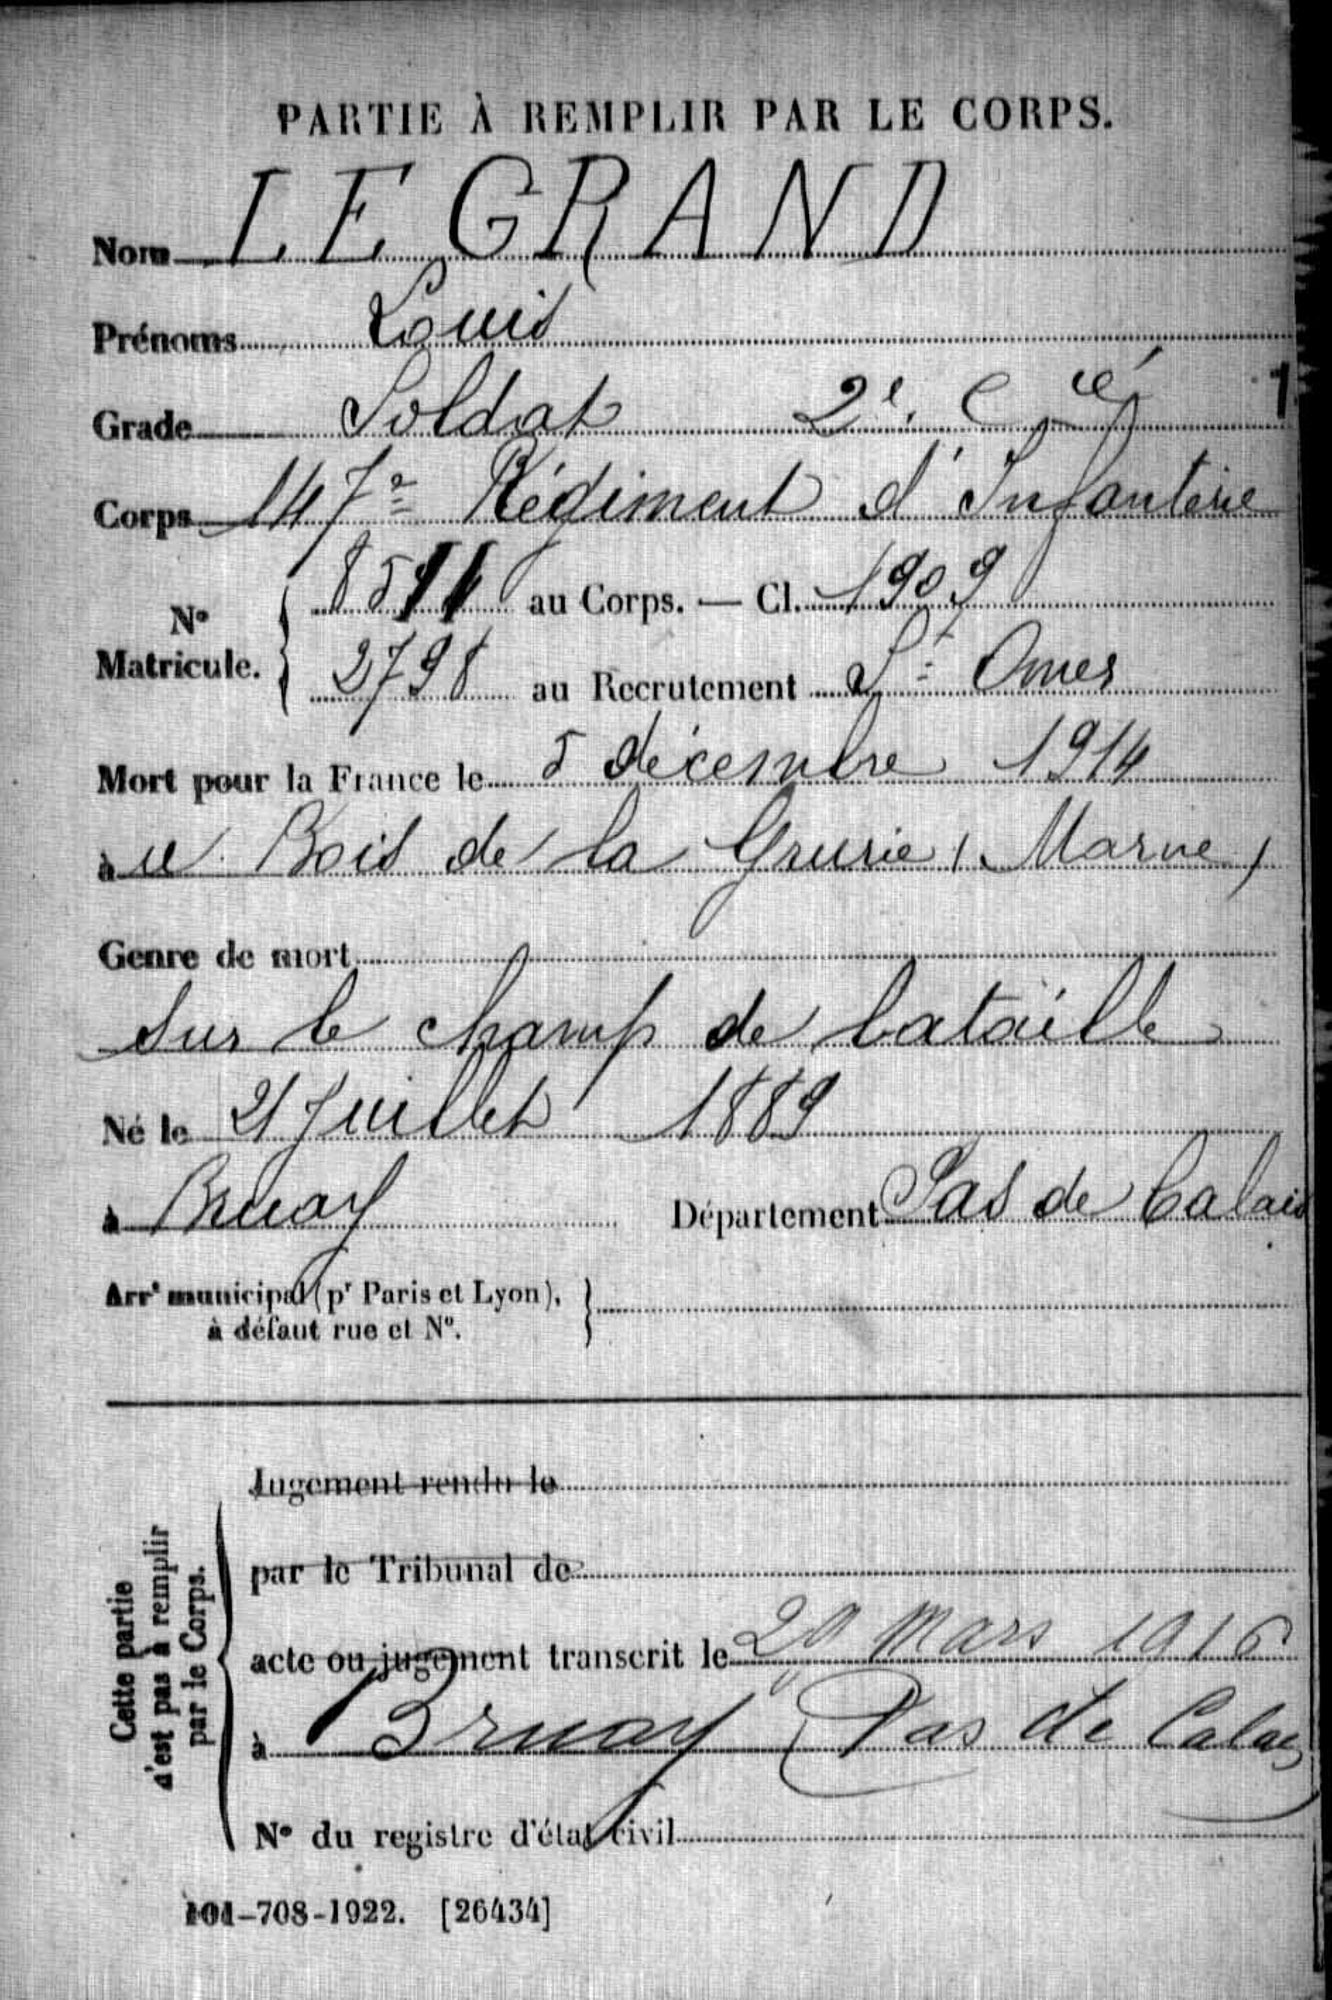 PARTIE À REMPLIR PAR LE CORPS.
Nom LEGRAND
Prénoms Louis
Grade Soldat 2e. Cié 1
Corps 147e Régiment d'Infanterie
No Matricule. au Corps. — Cl. 1909
2798 au Recrutement St Omer
Mort pour la France le 5 décembre 1914
à u Bois de la Grurie (Marne)
Genre de mort
Sur le champ de bataille
Né le 21 Juillet 1889
à Bruay Département Pas de Calais
Arrt municipal (pr Paris et Lyon),
à défaut rue et No.
Cette partie
n'est pas à remplir
par le Corps.
Jugement rendu le
par le Tribunal de
acte ou jugement transcrit le 29 Mars 1916
à Bruay (Pas de Calais
No du registre d'état civil
101-708-1922. [26434]